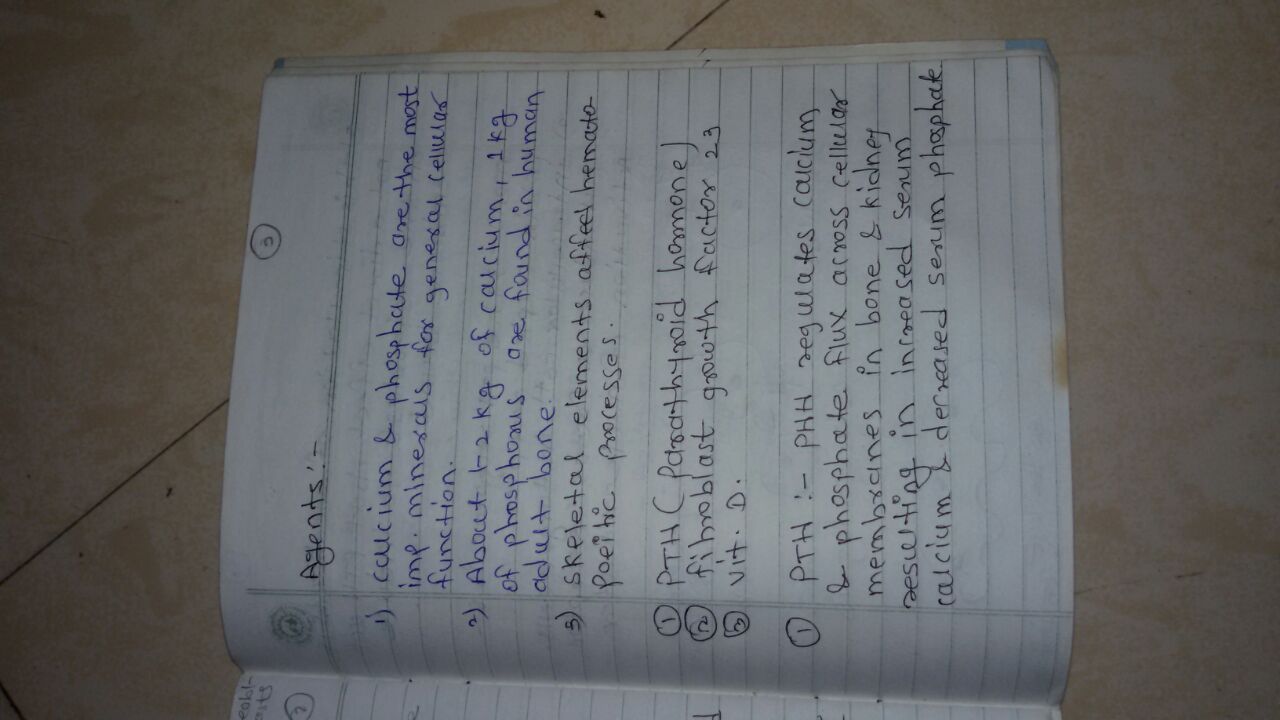 3
Agents:-
1) calcium & phosphate are the most
imp. minerals for general cellular
function.
2) About 1-2 kg of calcium, 1 kg
of phosphorus are found in human
adult bone.
3) skeletal elements affect hemato-
poeitic processes.
1 PTH (parathyroid hormone)
2 fibroblast growth factor 23
3 vit. D.
1 PTH :- PHH regulates calcium
& phosphate flux across cellular
membranes in bone & kidney
resulting in increased serum
calcium & decreased serum phosphate.